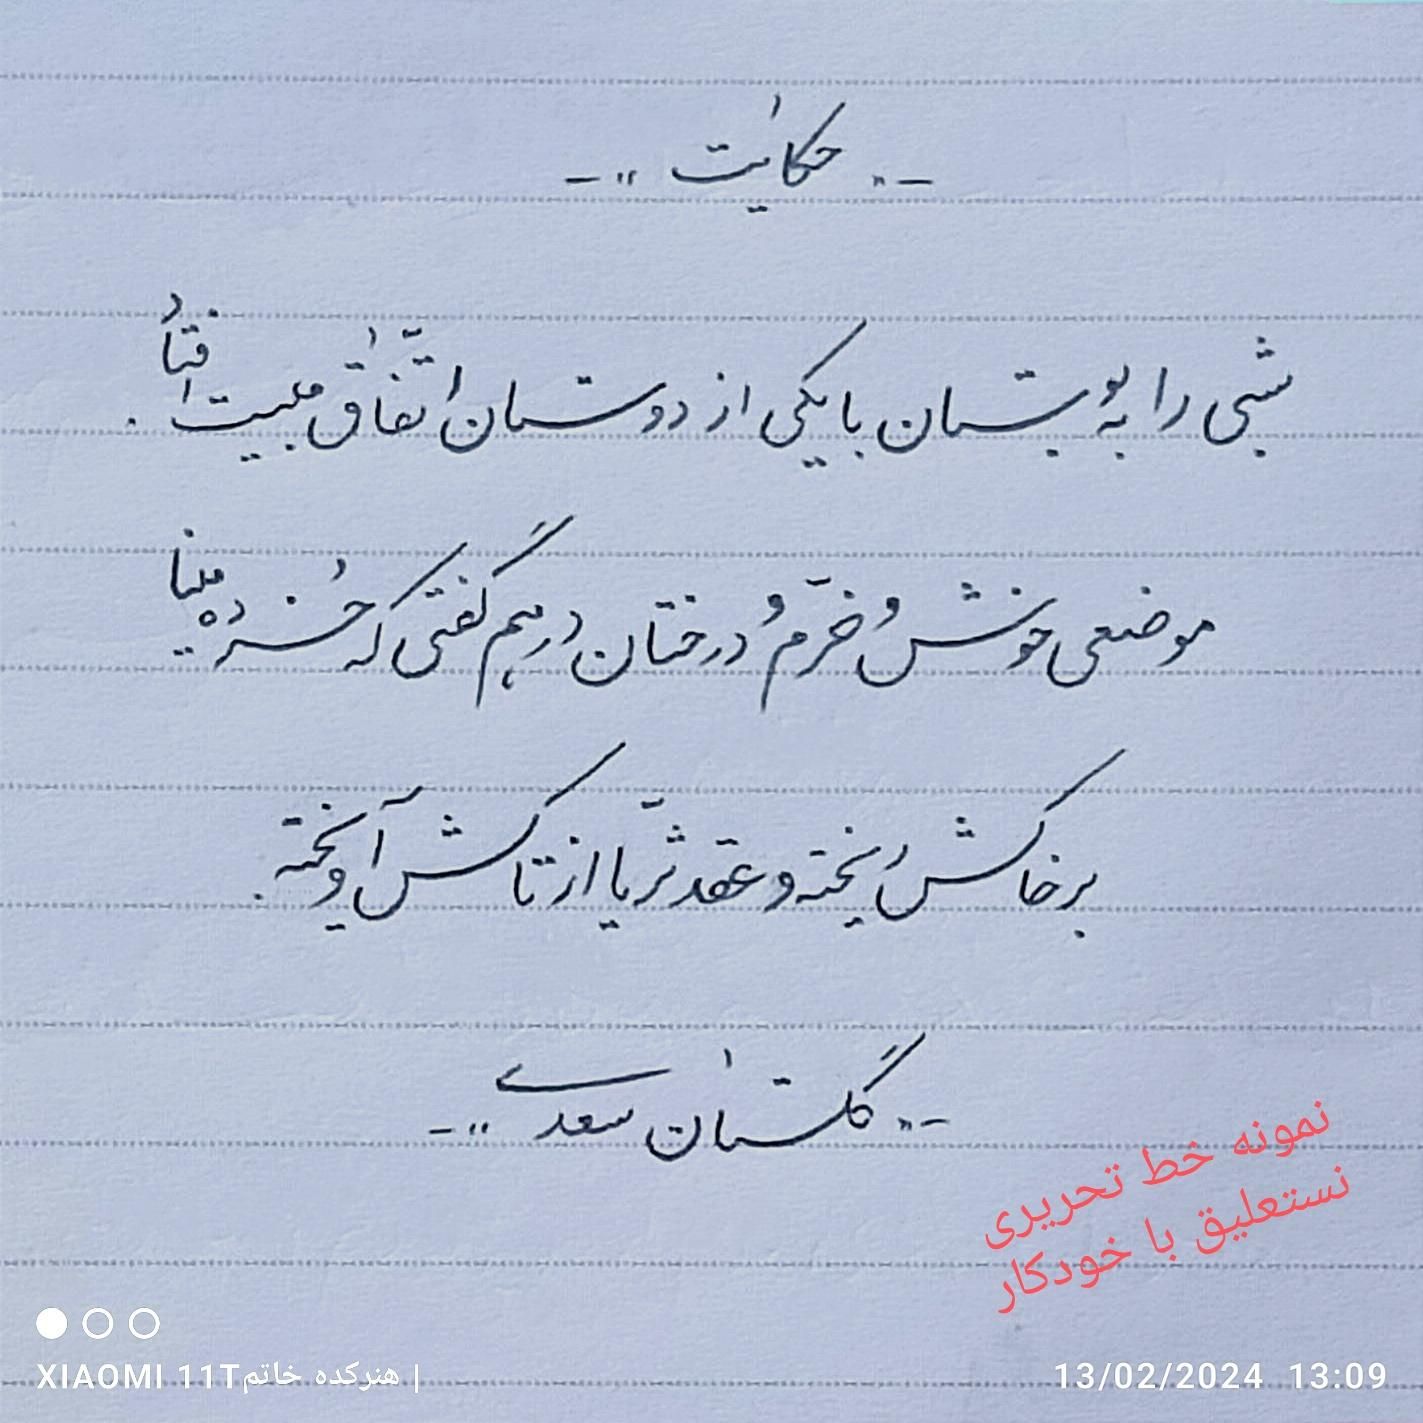 حکایت
شبی را به بوستان با یکی از دوستان اتّفاق مبیت افتاد.
موضعی خوش و خرّم و درختان درهم گفتی که خُرده مینا
بر خاکش ریخته و عقد ثریّا از تاکش آویخته.
گلستان سعدی
نمونه خط تحریری
نستعلیق با خودکار
XIAOMI 11T هنرکده خاتم |
13/02/2024 13:09